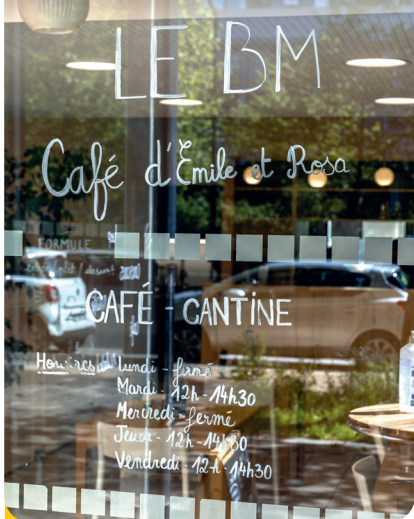 LE BM
Café d'Émile et Rosa
FORMULE
CAFÉ - CANTINE
Horaires Lundi - fermé
Mardi - 12h - 14h30
Mercredi - fermé
Jeudi - 12h - 14h30
Vendredi - 12h - 14h30